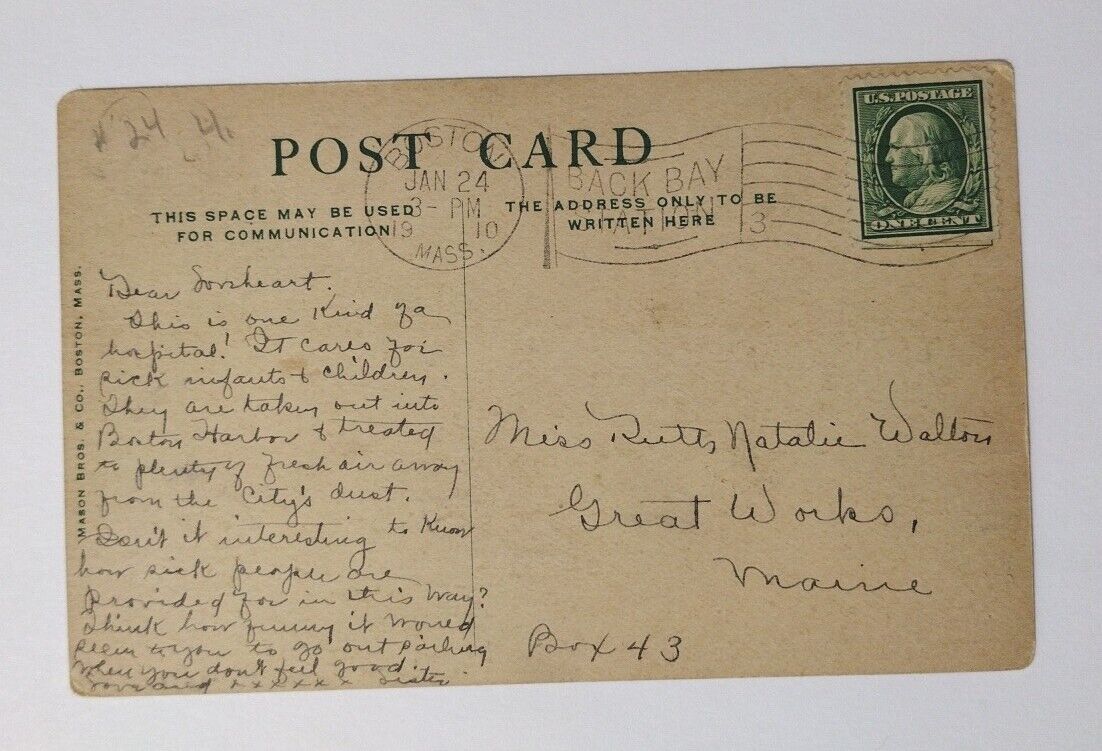 24
POST CARD
THIS SPACE MAY BE USED
FOR COMMUNICATION
THE ADDRESS ONLY TO BE
WRITTEN HERE
BOSTON
JAN 24
3 - PM
19 10
MASS.
BACK BAY
STATION
3
U.S. POSTAGE
ONE CENT
MASON BROS. & CO., BOSTON, MASS.
Dear
This is one Kind of a
hospital! It cares for
sick infants & children.
They are taken out into
Boston Harbor & treated
to plenty of fresh air away
from the City's dust.
Isn't it interesting to Know
how sick people are
provided for in this way?
Think how funny it would
seem to you to go out sailing
when you don't feel good.
Love and x x x x x x Sister.
Miss Ruth Natalie Walton
Great Works,
Maine
Box 43